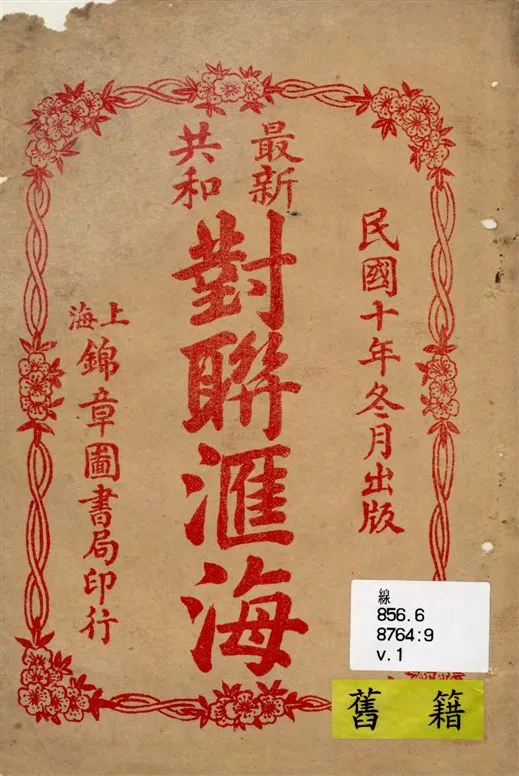 民國十年冬月出版
最新
共和
對聯滙海
上海
錦章圖書局印行
線
856.6
8764:9
v.1
舊籍